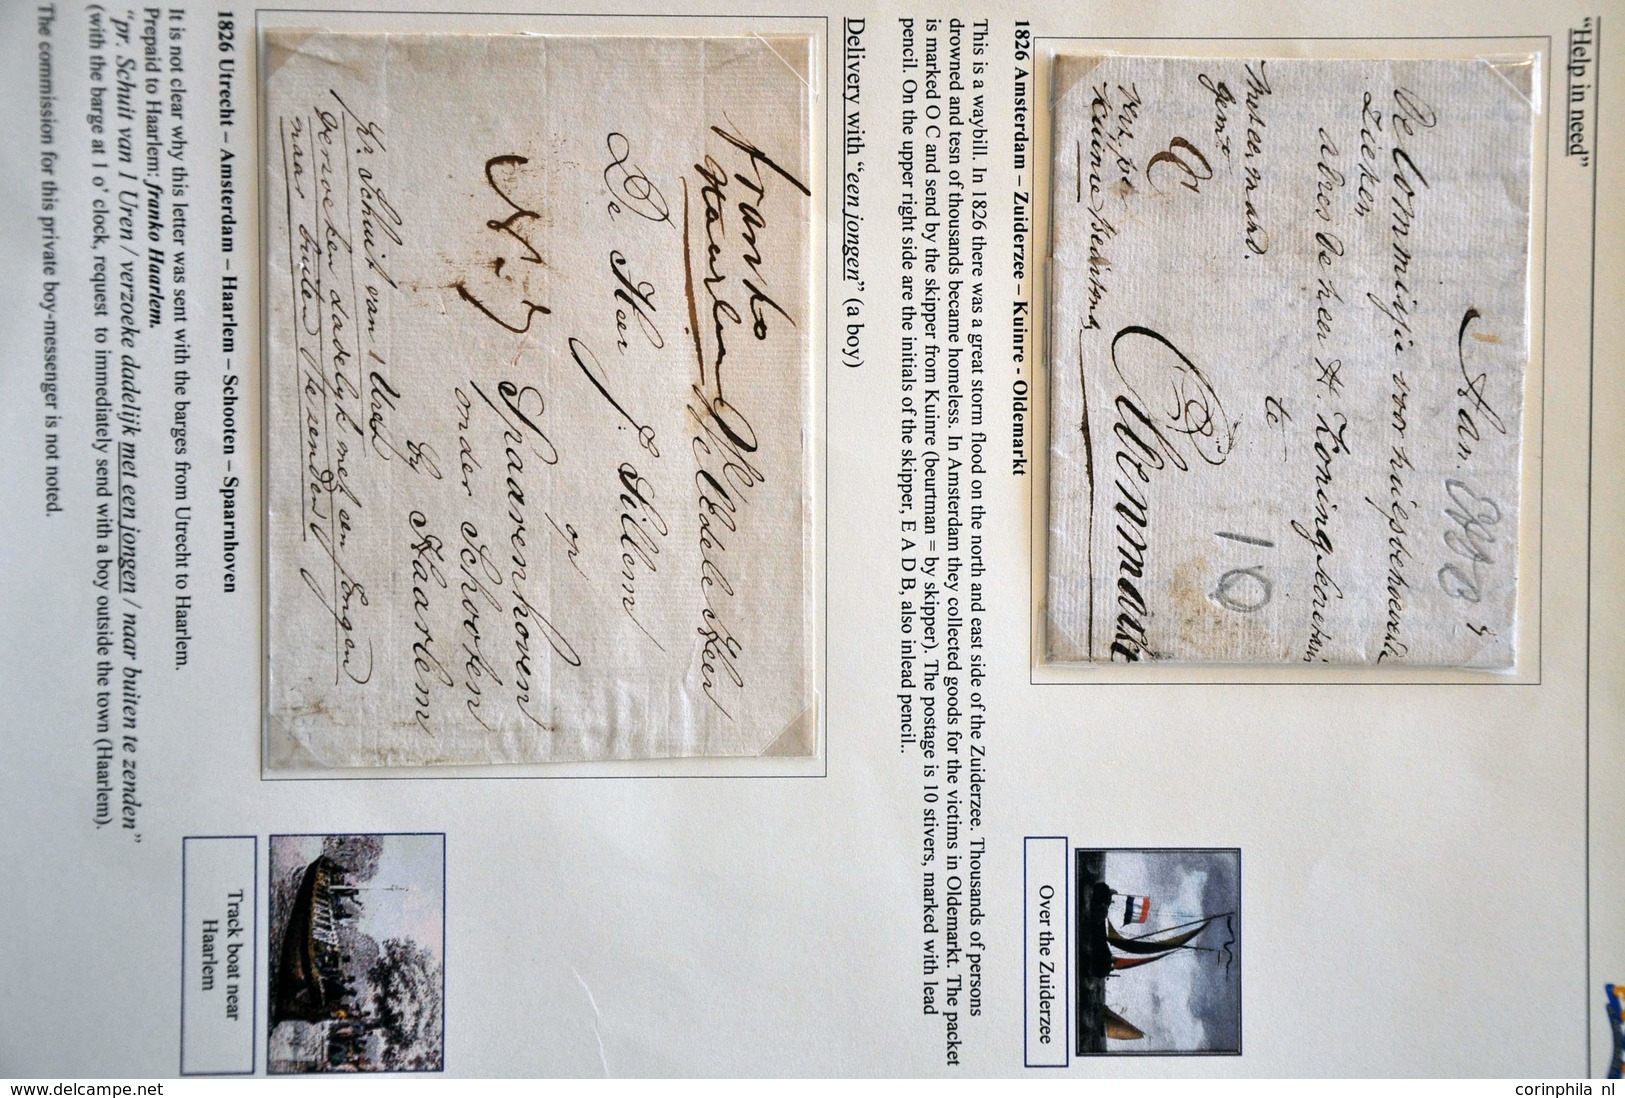 “Help in need”
Aan.
De Commissie voor hulpsbehoevende
Zieken,
adres de heer H. Koningh
te
Met een mand.
gem:
Oldenmarkt
10
1826 Amsterdam – Zuiderzee – Kuinre - Oldemarkt
Over the Zuiderzee
This is a waybill. In 1826 there was a great storm flood on the north and east side of the Zuiderzee. Thousands of persons
drowned and tesn of thousands became homeless. In Amsterdam they collected goods for the victims in Oldemarkt. The packet
is marked O C and send by the skipper from Kuinre (beurtman = by skipper). The postage is 10 stivers, marked with lead
pencil. On the upper right side are the initials of the skipper, E A D B, also inlead pencil..
Delivery with “een jongen” (a boy)
franko
Haarlem
WelEdele Heer
De Heer J. Sillem
op
Spaarenhoven
onder Schooten
by Haarlem
pr. Schuit van 1 Uren
verzoeken dadelyk met een Jongen
naar buiten te zenden
Track boat near
Haarlem
1826 Utrecht – Amsterdam – Haarlem – Schooten – Spaarnhoven
It is not clear why this letter was sent with the barges from Utrecht to Haarlem.
Prepaid to Haarlem: franko Haarlem.
“pr. Schuit van 1 Uren / verzoeke dadelijk met een jongen / naar buiten te zenden”
(with the barge at 1 o’ clock, request to immediately send with a boy outside the town (Haarlem).
The commission for this private boy-messenger is not noted.
www.delcampe.net
corinphila nl